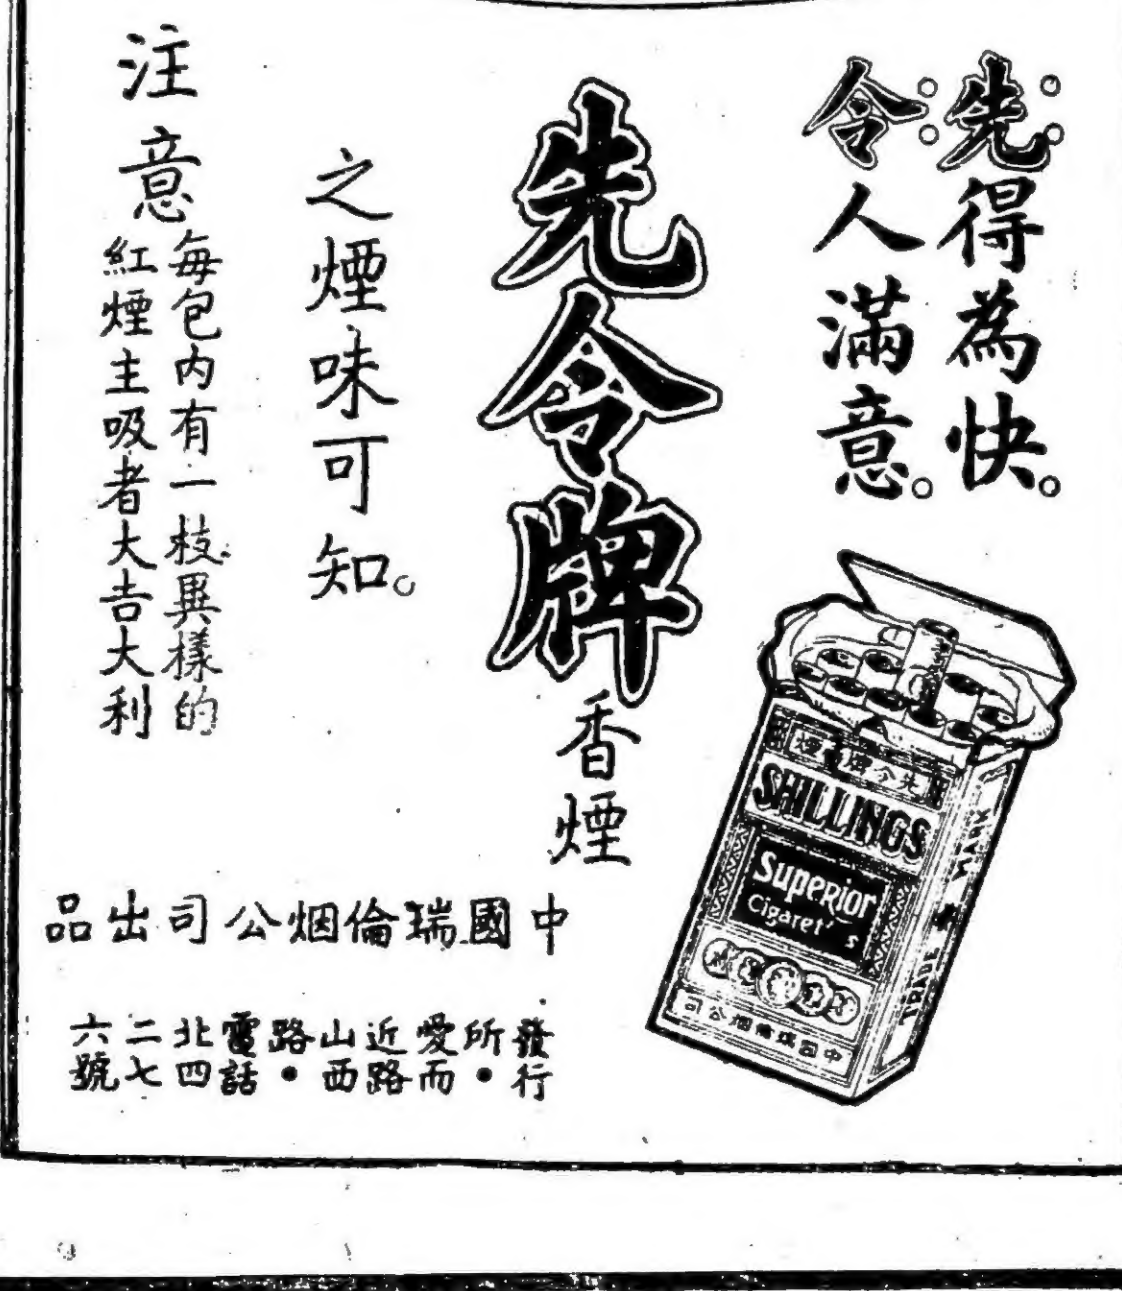 先得為快。
令人滿意。
先令牌香煙
之煙味可知。
注意
每包內有一枝異樣的
紅煙主吸者大吉大利
先令牌香煙
SHILLINGS
Superior
Cigaret's
中國瑞倫烟公司
TRADE MARK
中國瑞倫烟公司出品
發行所•愛而近路山西路•電話北四二七六號